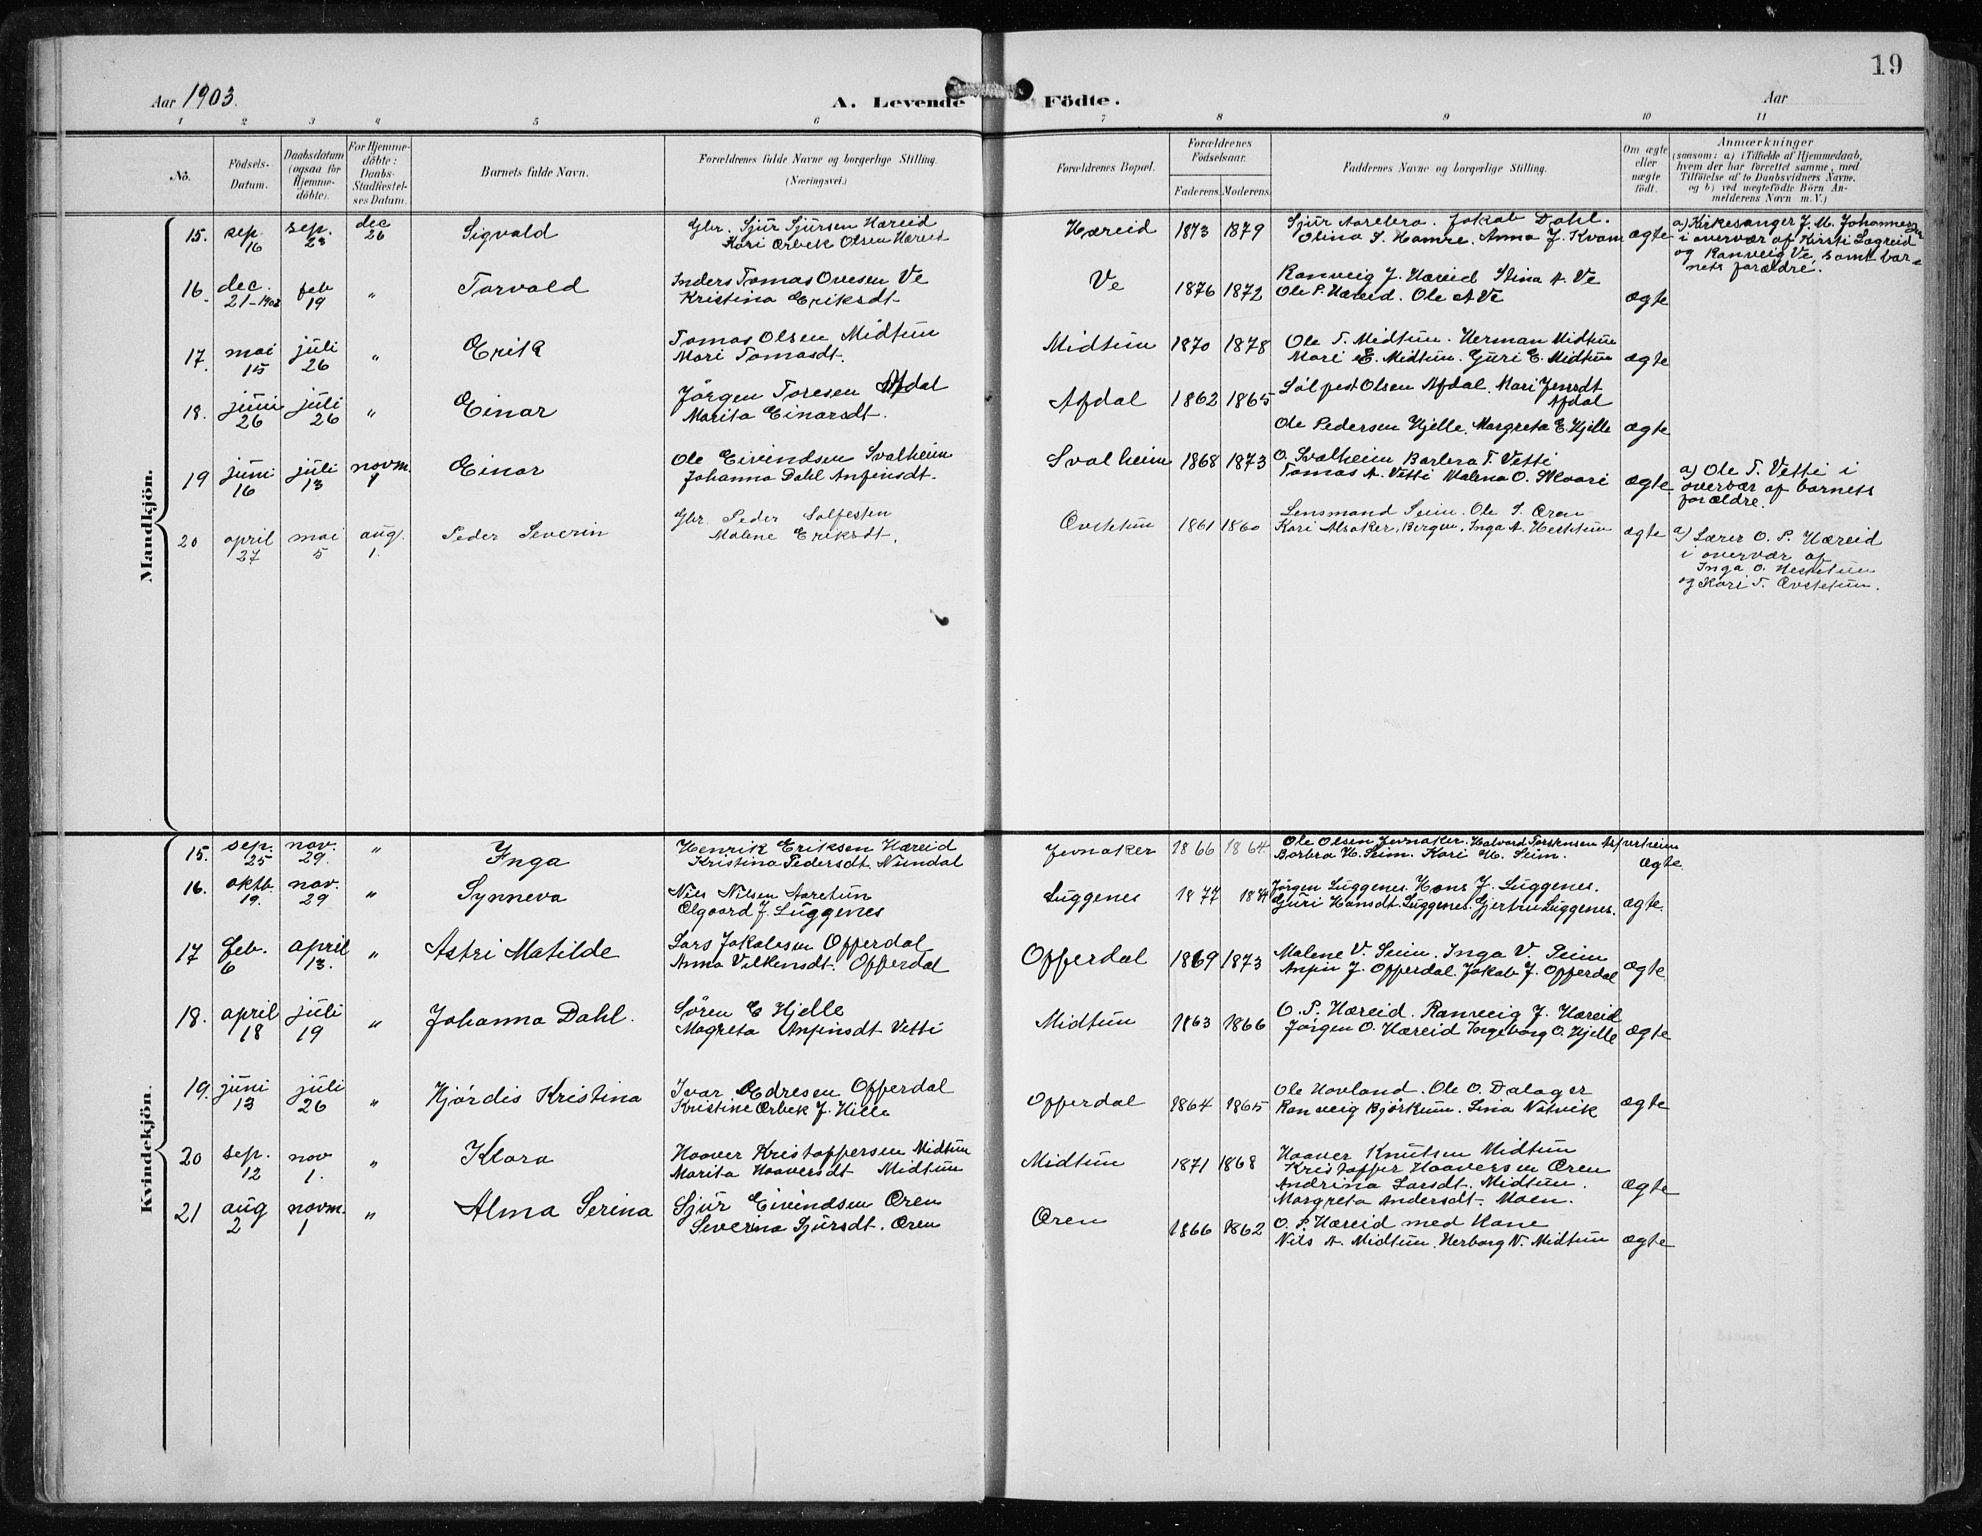 19
Aar 1903.
A. Levende Födte.
Aar
1 2 3 4 5 6 7 8 9 10 11
No.
Födsels-
Datum.
Daabsdatum
(ogsaa for
Hjemme-
döbte).
For Hjemme-
döbte:
Daabs-
Stadfæstel-
ses Datum.
Barnets fulde Navn.
Forældrenes fulde Navne og borgerlige Stilling.
(Næringsvei.)
Forældrenes Bopæl.
Forældrenes
Födselsaar.
Faderens. Moderens.
Faddernes Navne og borgerlige Stilling.
Om ægte
eller
uægte
födt.
Anmærkninger
(saasom: a) i Tilfælde af Hjemmedaab,
hvem der har forrettet samme, med
Tilföielse af to Daabsvidners Navne.
og b) ved uægtefödte Börn An-
melderens Navn m. V.)
Mandkjön.
15. sep. 16 sep. 23 dec 26 Sigvald
Gbr. Sjur Sjursen Hæreid
Kari Ørbek Olsen Hæreid
Hæreid 1873 1879
Sjur Aarebro. Jakob Dahl.
Olina S. Hamre. Anna J. Kvam
ægte
a) Kirkesanger J. M. Johannessen
i overvær af Kirsti Lægreid
og Ranveig Ve, samt bar-
nets forældre.
16. dec. 21-1902 feb 19 " Torvald
Anders Tomas Ovesen Ve
Kristina Eriksdt
Ve 1876 1872
Ranveig J. Hæreid Stina A. Ve
Ole P. Hæreid. Ole A Ve
ægte
17. mai 15 juli 26 " Erik
Tomas Olsen Midtun
Mari Tomasdt.
Midtun 1870 1878
Ole T. Midtun. Herman Midtun
Mari E. Midtun. Guri E. Midtun
ægte
18. juni 26 juli 26 " Einar
Jörgen Toresen Afdal
Marita Einarsdt.
Afdal 1862 1865
Sølfest Olsen Afdal. Mari Jensdt
Afdal
Ole Pedersen Hjelle. Margreta E. Hjelle
ægte
19 juni 16 juli 13 novm. 1 Einar
Ole Eivindsen Svalheim
Johanna Dahl Anfinsdt.
Svalheim 1868 1873
O. Svalheim Barbra T. Vetti
Tomas A. Vetti Malena O. Skaari
ægte
a) Ole T. Vetti i
overvær af barnets
forældre.
20 april 27 mai 5 aug. 1. Peder Severin
Gbr. Peder Solfesten
Malene Eriksdt.
Øvstetun 1861 1860
Lensmand Seim. Ole S. Øren
Kari Alsaker, Bergen. Inga A. Hestetun
ægte
a) Lærer O. P. Hæreid
i overvær af
Inga O. Hestetun
og Kari T. Øvstetun.
Kvindekjön.
15. sep. 25 nov. 29. " Inga
Henrik Eriksen Hæreid
Kristina Pedersdt. Nundal
Jevnaker 1866 1864
Ole Olsen Jevnaker. Halvard Torstensen Asperheim
Barbra H. Seim. Kari H. Seim.
ægte.
16. oktb. 19. nov. 29 " Synneva
Nils Nilsen Aaretun
Olgaard J. Luggenes
Luggenes 1877
Jørgen Luggenes. Hans J. Luggenes.
Guri Hansdt. Luggenes. Gjertru Luggenes.
ægte.
17 feb. 6 april 13. " Astri Matilde
Lars Jakobsen Offerdal
Anna Vilkensdt. Offerdal
Offerdal 1869 1873
Malene V. Seim. Inga V. Seim
Anfin J. Offerdal. Jakob J. Offerdal
ægte
18. april 18 juli 19 " Johanna Dahl.
Søren E Hjelle
Magreta Anfinsdt Vetti
Midtun 1863 1866
O. P. Hæreid. Ranveig J. Hæreid
Jørgen O. Hæreid Ingeborg O. Hjelle
ægte
19. juni 13 juli 26 " Hjørdis Kristina
Ivar Edresen Offerdal
Kristine Ørbek J. Hille
Offerdal 1864 1865
Ole Hovland. Ole O. Dalager
Ranveig Bjørkum. Lina Natvik
ægte
20 sep. 12 nov 1. " Klara
Haaver Kristoffersen Midtun
Marita Haaversdt Midtun
Midtun 1871 1868
Haaver Knutsen Midtun
Kristoffer Haaversen Øren
Andrina Larsdt. Midtun.
Margreta Andersdt. Moen.
ægte
21 aug 2 novm. 1 " Alma Serina
Sjur Eivindsen Øren
Severina Sjursdt. Øren
Øren 1866 1862
O. P. Hæreid med Kone
Nils A. Midtun. Herborg N. Midtun
ægte